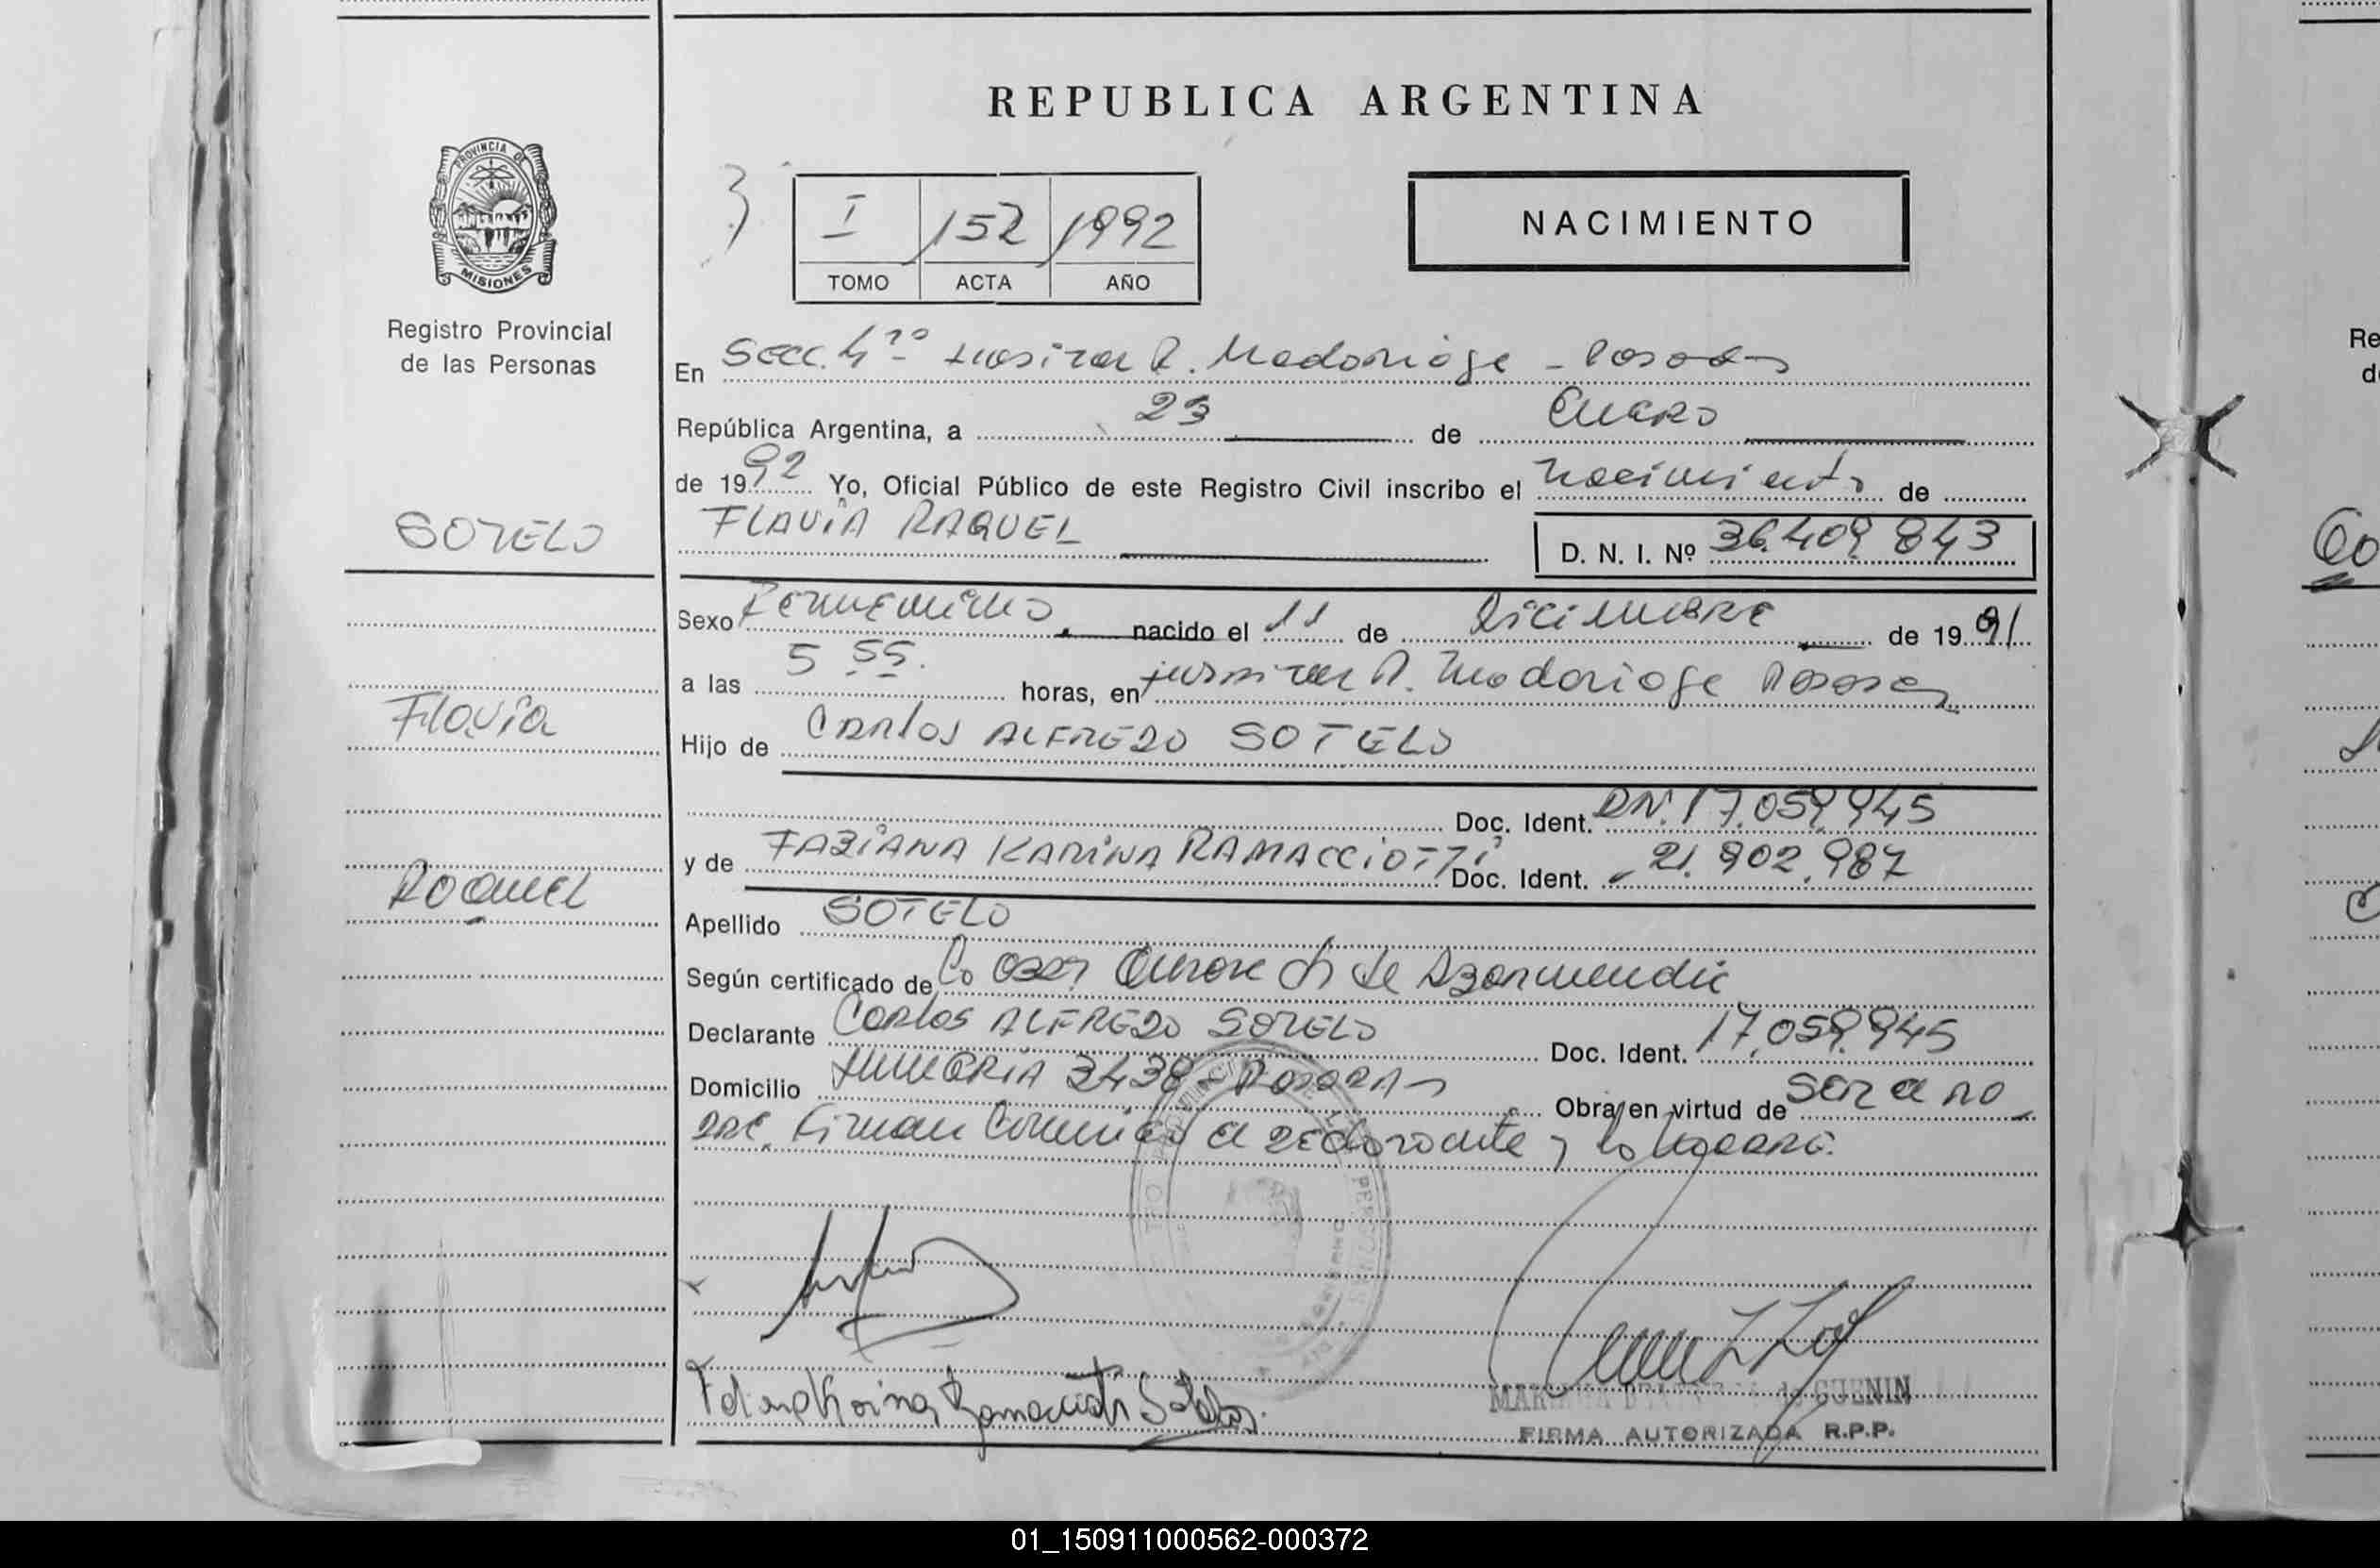 REPUBLICA ARGENTINA
PROVINCIA DE
MISIONES
Registro Provincial
de las Personas
I 152 1992
TOMO ACTA AÑO
NACIMIENTO
En Secc. 4ta R. Madariaga - Posadas
República Argentina, a 23 de Enero
de 1992 Yo, Oficial Público de este Registro Civil inscribo el nacimiento de
SOTELO
FLAVIA RAQUEL
D. N. I. Nº 36.409.843
Sexo Femenino, nacido el 11 de Diciembre de 1991
a las 5 55. horas, en R. Madariaga Posadas
Flavia
Hijo de Carlos ALFREDO SOTELO
Doc. Ident. DNI. 17.059.945
y de FABIANA KARINA RAMACCIOTTI Doc. Ident. 21.902.987
Raquel
Apellido SOTELO
Según certificado de de Azarmendia
Declarante Carlos ALFREDO SOTELO Doc. Ident. 17.059.945
Domicilio 3438 - Posadas Obra en virtud de ser el pa
dre. Firman Conmigo el declarante y la madre.
GUENIN
FIRMA AUTORIZADA R.P.P.
01_150911000562-000372